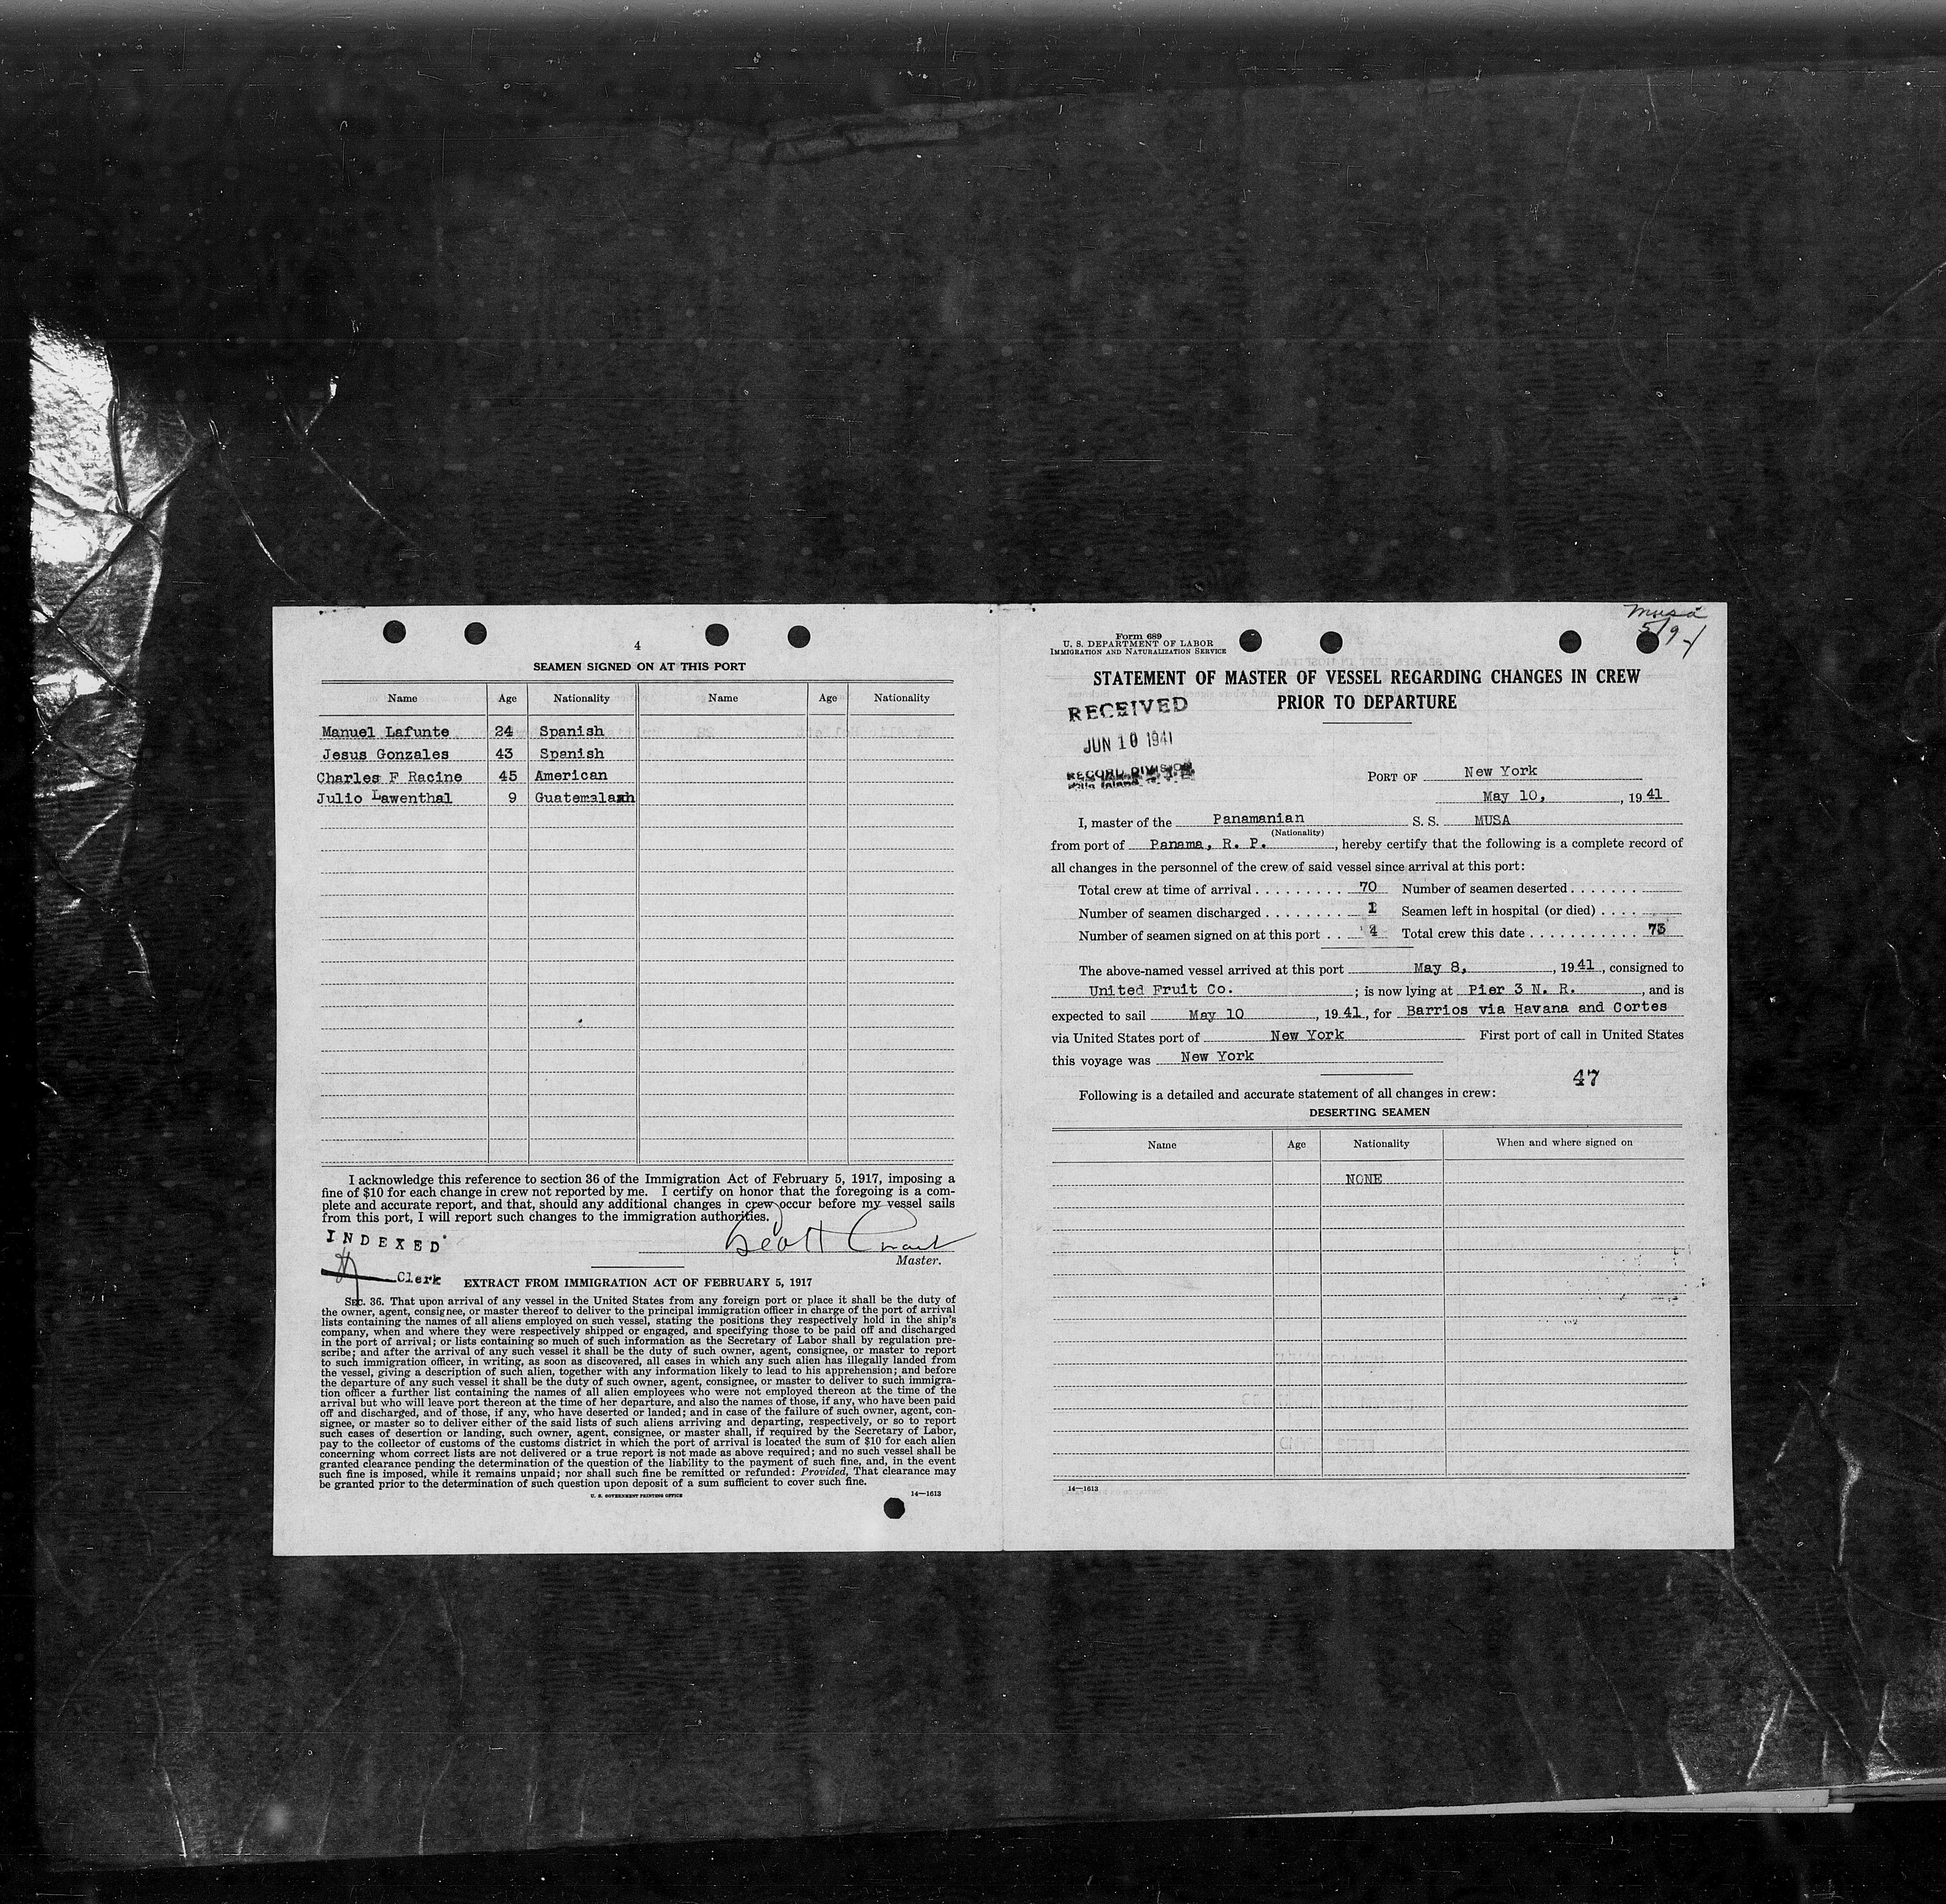 4
SEAMEN SIGNED ON AT THIS PORT
Name Age Nationality Name Age Nationality
Manuel Lafunte 24 Spanish
Jesus Gonzales 43 Spanish
Charles F Racine 45 American
Julio Lawenthal 9 Guatemalan
I acknowledge this reference to section 36 of the Immigration Act of February 5, 1917, imposing a
fine of $10 for each change in crew not reported by me. I certify on honor that the foregoing is a com-
plete and accurate report, and that, should any additional changes in crew occur before my vessel sails
from this port, I will report such changes to the immigration authorities.
INDEXED
Scott
Master.
Clerk
EXTRACT FROM IMMIGRATION ACT OF FEBRUARY 5, 1917
SEC. 36. That upon arrival of any vessel in the United States from any foreign port or place it shall be the duty of
the owner, agent, consignee, or master thereof to deliver to the principal immigration officer in charge of the port of arrival
lists containing the names of all aliens employed on such vessel, stating the positions they respectively hold in the ship's
company, when and where they were respectively shipped or engaged, and specifying those to be paid off and discharged
in the port of arrival; or lists containing so much of such information as the Secretary of Labor shall by regulation pre-
scribe; and after the arrival of any such vessel it shall be the duty of such owner, agent, consignee, or master to report
to such immigration officer, in writing, as soon as discovered, all cases in which any such alien has illegally landed from
the vessel, giving a description of such alien, together with any information likely to lead to his apprehension; and before
the departure of any such vessel it shall be the duty of such owner, agent, consignee, or master to deliver to such immigra-
tion officer a further list containing the names of all alien employees who were not employed thereon at the time of the
arrival but who will leave port thereon at the time of her departure, and also the names of those, if any, who have been paid
off and discharged, and of those, if any, who have deserted or landed; and in case of the failure of such owner, agent, con-
signee, or master so to deliver either of the said lists of such aliens arriving and departing, respectively, or so to report
such cases of desertion or landing, such owner, agent, consignee, or master shall, if required by the Secretary of Labor,
pay to the collector of customs of the customs district in which the port of arrival is located the sum of $10 for each alien
concerning whom correct lists are not delivered or a true report is not made as above required; and no such vessel shall be
granted clearance pending the determination of the question of the liability to the payment of such fine, and, in the event
such fine is imposed, while it remains unpaid; nor shall such fine be remitted or refunded: Provided, That clearance may
be granted prior to the determination of such question upon deposit of a sum sufficient to cover such fine.
U. S. GOVERNMENT PRINTING OFFICE 14—1613
Musa
5/9-/
Form 689
U. S. DEPARTMENT OF LABOR
IMMIGRATION AND NATURALIZATION SERVICE
STATEMENT OF MASTER OF VESSEL REGARDING CHANGES IN CREW
PRIOR TO DEPARTURE
RECEIVED
JUN 10 1941
RECORD DIVISION
PORT OF New York
May 10, , 1941
I, master of the Panamanian S. S. MUSA
(Nationality)
from port of Panama, R. P. , hereby certify that the following is a complete record of
all changes in the personnel of the crew of said vessel since arrival at this port:
Total crew at time of arrival . . . . . . . . . 70 Number of seamen deserted . . . . . . .
Number of seamen discharged . . . . . . . . 1 Seamen left in hospital (or died) . . . .
Number of seamen signed on at this port . . 4 Total crew this date . . . . . . . . . . . 73
The above-named vessel arrived at this port May 8, , 1941, consigned to
United Fruit Co. ; is now lying at Pier 3 N. R. , and is
expected to sail May 10 , 1941, for Barrios via Havana and Cortes
via United States port of New York First port of call in United States
this voyage was New York
47
Following is a detailed and accurate statement of all changes in crew:
DESERTING SEAMEN
Name Age Nationality When and where signed on
NONE
14—1613